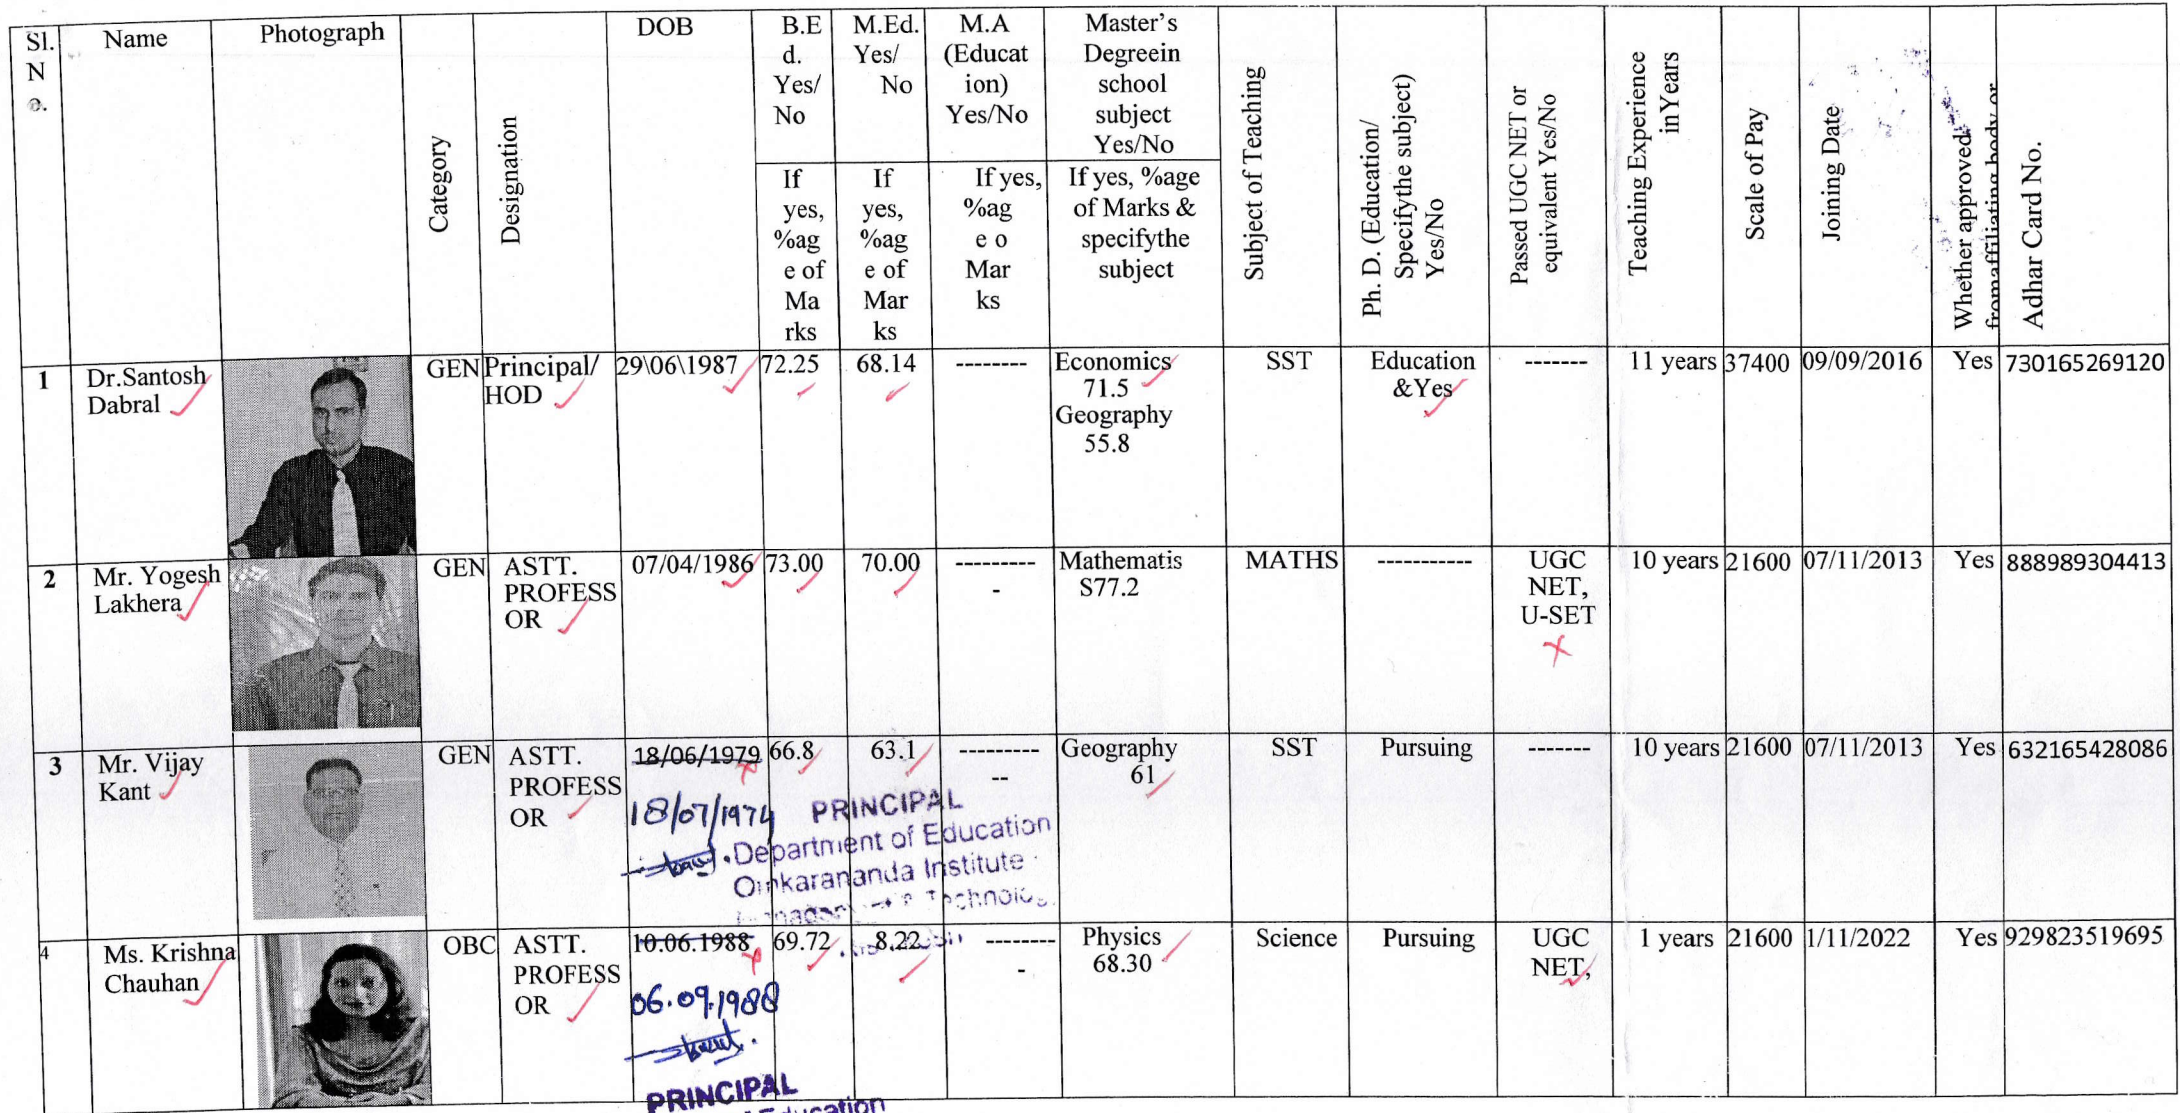 Sl.
N
o.
Name
Photograph
Category
Designation
DOB
B.E
d.
Yes/
No
If
yes,
%ag
e of
Ma
rks
M.Ed.
Yes/
No
If
yes,
%ag
e of
Mar
ks
M.A
(Educat
ion)
Yes/No
If yes,
%ag
e o
Mar
ks
Master's
Degreein
school
subject
Yes/No
If yes, %age
of Marks &
specifythe
subject
Subject of Teaching
Ph. D. (Education/
Specifythe subject)
Yes/No
Passed UGC NET or
equivalent Yes/No
Teaching Experience
in Years
Scale of Pay
Joining Date
Whether approved
fromaffiliating body or
Adhar Card No.
1
Dr.Santosh
Dabral
GEN
Principal/
HOD
29\06\1987
72.25
68.14
--------
Economics
71.5
Geography
55.8
SST
Education
&Yes
-------
11 years
37400
09/09/2016
Yes
730165269120
2
Mr. Yogesh
Lakhera
GEN
ASTT.
PROFESS
OR
07/04/1986
73.00
70.00
---------
-
Mathematis
S77.2
MATHS
-----------
UGC
NET,
U-SET
10 years
21600
07/11/2013
Yes
888989304413
3
Mr. Vijay
Kant
GEN
ASTT.
PROFESS
OR
18/06/1979
18/07/1974
66.8
63.1
---------
--
Geography
61
SST
Pursuing
-------
10 years
21600
07/11/2013
Yes
632165428086
PRINCIPAL
Department of Education
Omkarananda Institute
4
Ms. Krishna
Chauhan
OBC
ASTT.
PROFESS
OR
10.06.1988
06.09.1988
69.72
8.22
--------
-
Physics
68.30
Science
Pursuing
UGC
NET,
1 years
21600
1/11/2022
Yes
929823519695
PRINCIPAL
Education